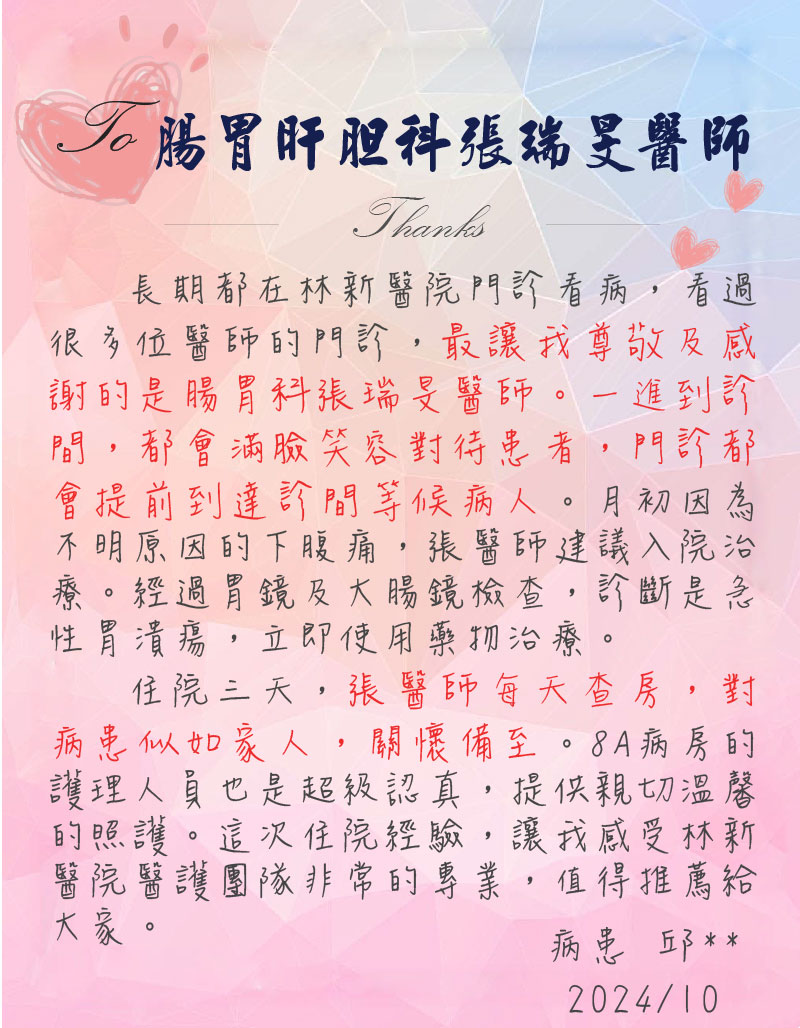 To 腸胃肝胆科張瑞旻醫師
Thanks
長期都在林新醫院門診看病，看過
很多位醫師的門診，最讓我尊敬及感
謝的是腸胃科張瑞旻醫師。一進到診
間，都會滿臉笑容對待患者，門診都
會提前到達診間等候病人。月初因為
不明原因的下腹痛，張醫師建議入院治
療。經過胃鏡及大腸鏡檢查，診斷是急
性胃潰瘍，立即使用藥物治療。
住院三天，張醫師每天查房，對
病患似如家人，關懷備至。8A病房的
護理人員也是超級認真，提供親切溫馨
的照護。這次住院經驗，讓我感受林新
醫院醫護團隊非常的專業，值得推薦給
大家。
病患 邱**
2024/10